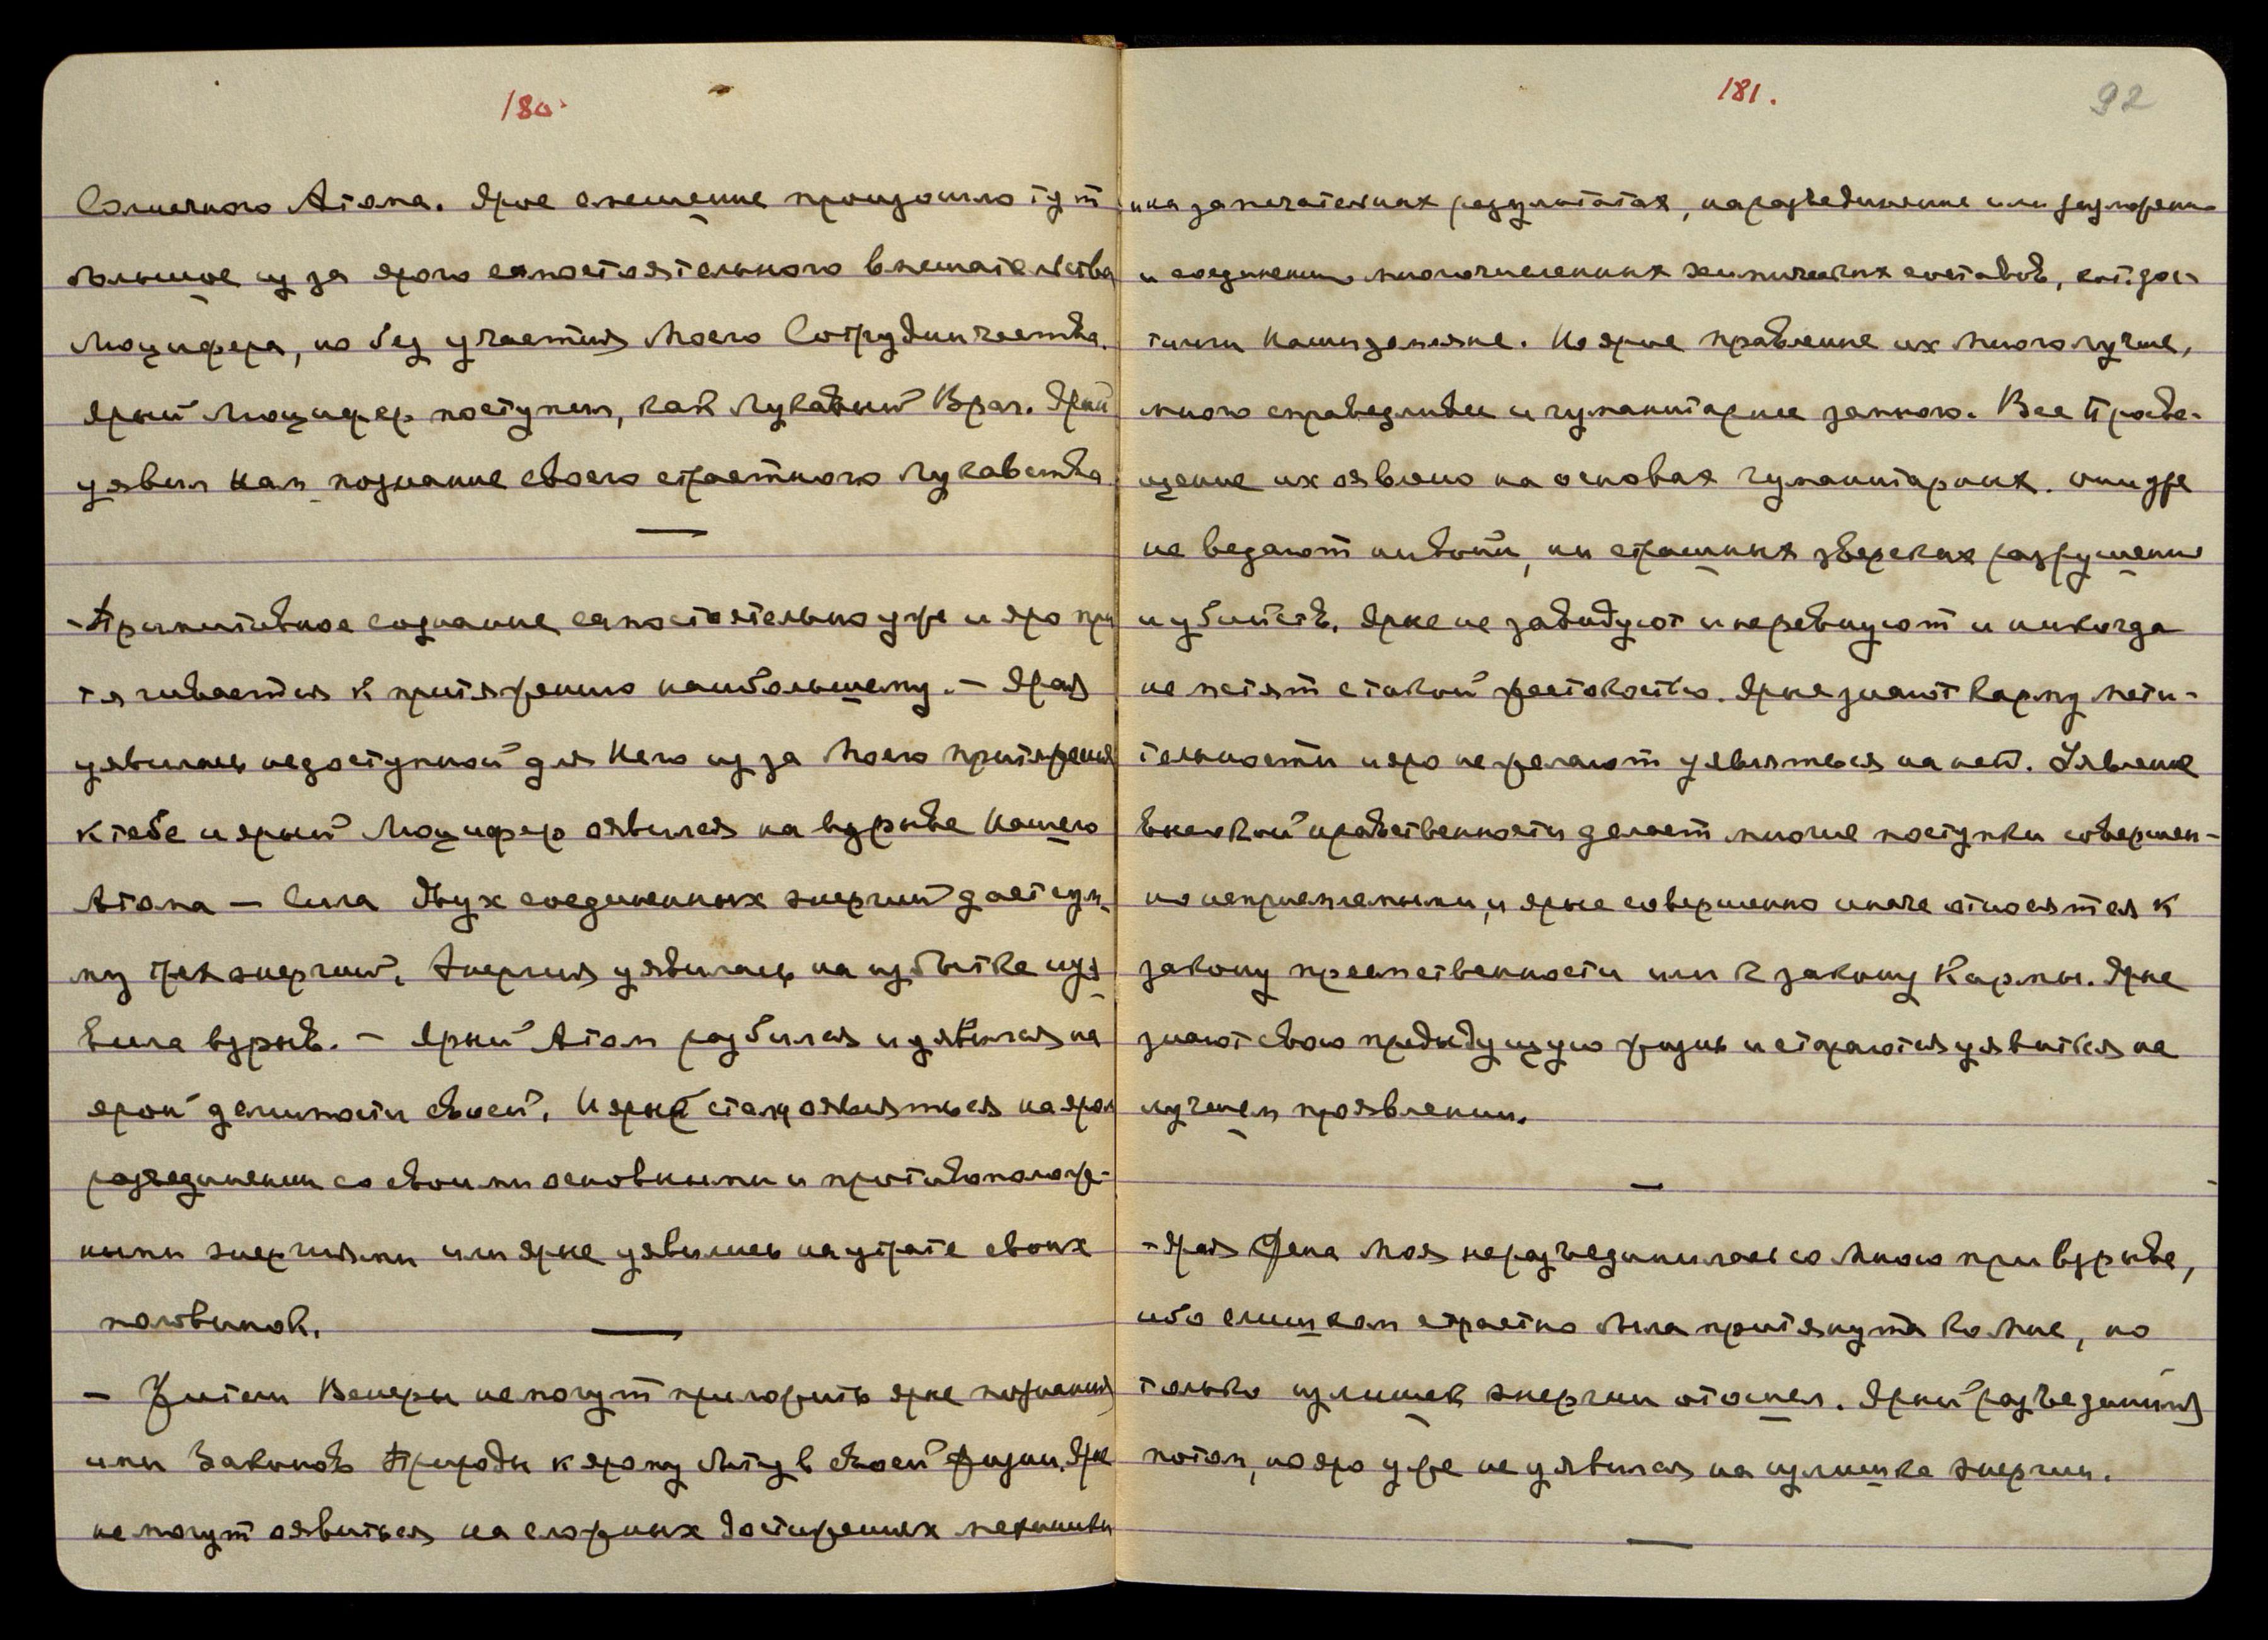 180.
Солнечного Атома. Ярое смешение произошло тут
большое из за ярого самостоятельного вмешательства
Люцифера, но без участия Моего Сотрудничества.
Ярый Люцифер поступил, как Лукавый Враг. Ярый
уявил Нам познание своего страстного Лукавства.
—
- Примитивное сознание самостоятельно уже и яро при
тягивается к притяжению наибольшему. - Ярая
уявилась недоступной для Него из за Моего притяжения
к тебе и ярый Люцифер оявился на взрыве Нашего
Атома — Сила двух соединенных энергий дает сум-
му трех энергий. Энергия уявилась на избытке и уя
вила взрыв. - Ярый Атом разбился и уявился на
ярой делимости своей. И ярые стали оявляться на яром
разъединении со своими основными и противополож-
ными энергиями или ярые уявились на утрате своих
половинок.
—
- Жители Венеры не могут приложить ярые познания
ими Законов Природы к ярому Быту в своей жизни. Ярые
не могут оявиться на сложных достижениях механики
181.
92
и на замечательных результатах, на разъединение или разложении
и соединении многочисленных химических составов, кот. дос-
тигли Наши земляне. Но ярое правление их много лучше,
много справедливее и гуманитарнее земного. Все Просве-
щение их оявлено на основах гуманитарных. они уже
не ведают ни войн, ни страшных зверских разрушений
и убийств. Ярые не завидуют и не ревнуют и никогда
не мстят с такой жестокостью. Ярые знают карму мсти-
тельности и яро не желают уявляться на ней. Уявление
высокой нравственности делает многие поступки совершен-
но неприемлемыми, и ярые совершенно иначе относятся к
закону преемственности или к закону Кармы. Ярые
знают свою предыдущую жизнь и стараются уявиться на
лучшем проявлении.
—
- Ярая Жена Моя не разъединилась со Мною при взрыве,
ибо слишком страстно была притянута ко Мне, но
только излишек энергии отошел. Ярый разъединился
потом, но яро уже не уявился на излишке энергии.
—